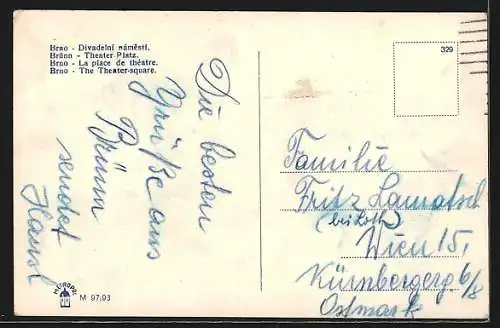 Brno - Divadelní náměstí.
Brünn - Theater-Platz.
Brno - La place de théatre.
Brno - The Theater-square.
Die besten
Grüße aus
Brünn
sendet
Hansl
329
Familie
Fritz Lamatsch
(bei Loth)
Wien 15,
Kürnbergerg 6/8
Ostmark
METROPOL
M 97/93